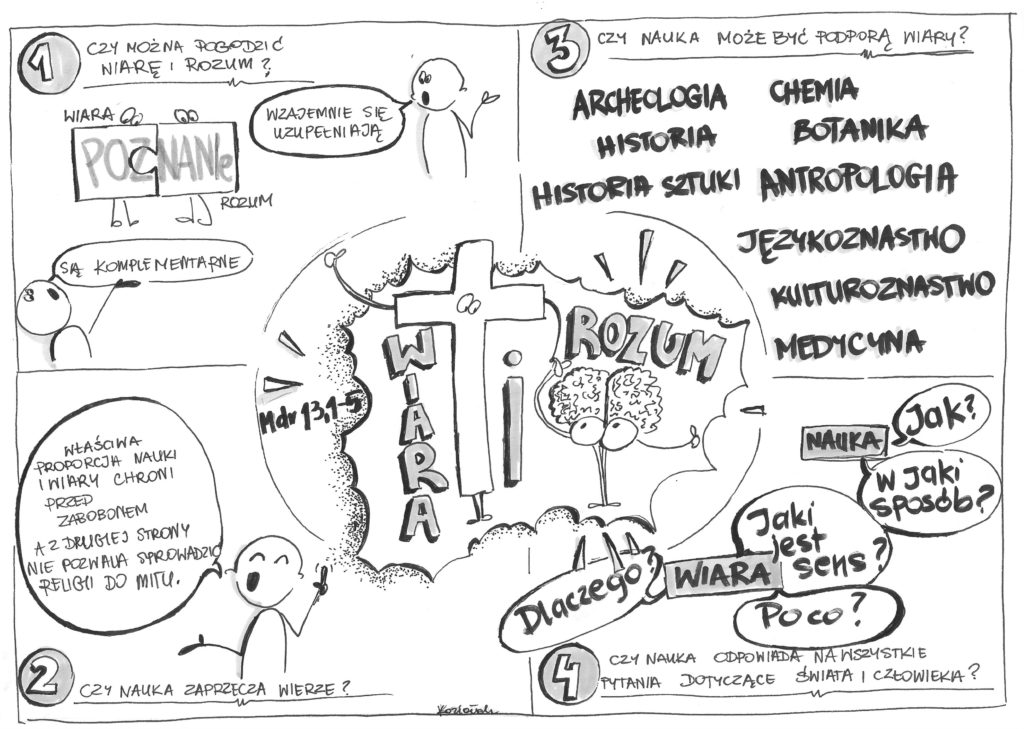 1
CZY MOŻNA POGODZIĆ
WIARĘ I ROZUM?
WIARA
POZNANIe
ROZUM
WZAJEMNIE SIĘ
UZUPEŁNIAJĄ
SĄ KOMPLEMENTARNE
WIARA
i
ROZUM
Mdr 13,1-5
WŁAŚCIWA
PROPORCJA NAUKI
I WIARY CHRONI
PRZED
ZABOBONEM
A Z DRUGIEJ STRONY
NIE POZWALA SPROWADZIĆ
RELIGII DO MITU.
2
CZY NAUKA ZAPRZECZA WIERZE?
3
CZY NAUKA MOŻE BYĆ PODPORĄ WIARY?
ARCHEOLOGIA
CHEMIA
HISTORIA
BOTANIKA
HISTORIA SZTUKI
ANTROPOLOGIA
JĘZYKOZNASTWO
KULTUROZNASTWO
MEDYCYNA
NAUKA
Jak?
W jaki
sposób?
WIARA
Jaki
jest
sens?
Dlaczego?
Po co?
4
CZY NAUKA ODPOWIADA NA WSZYSTKIE
PYTANIA DOTYCZĄCE ŚWIATA I CZŁOWIEKA?